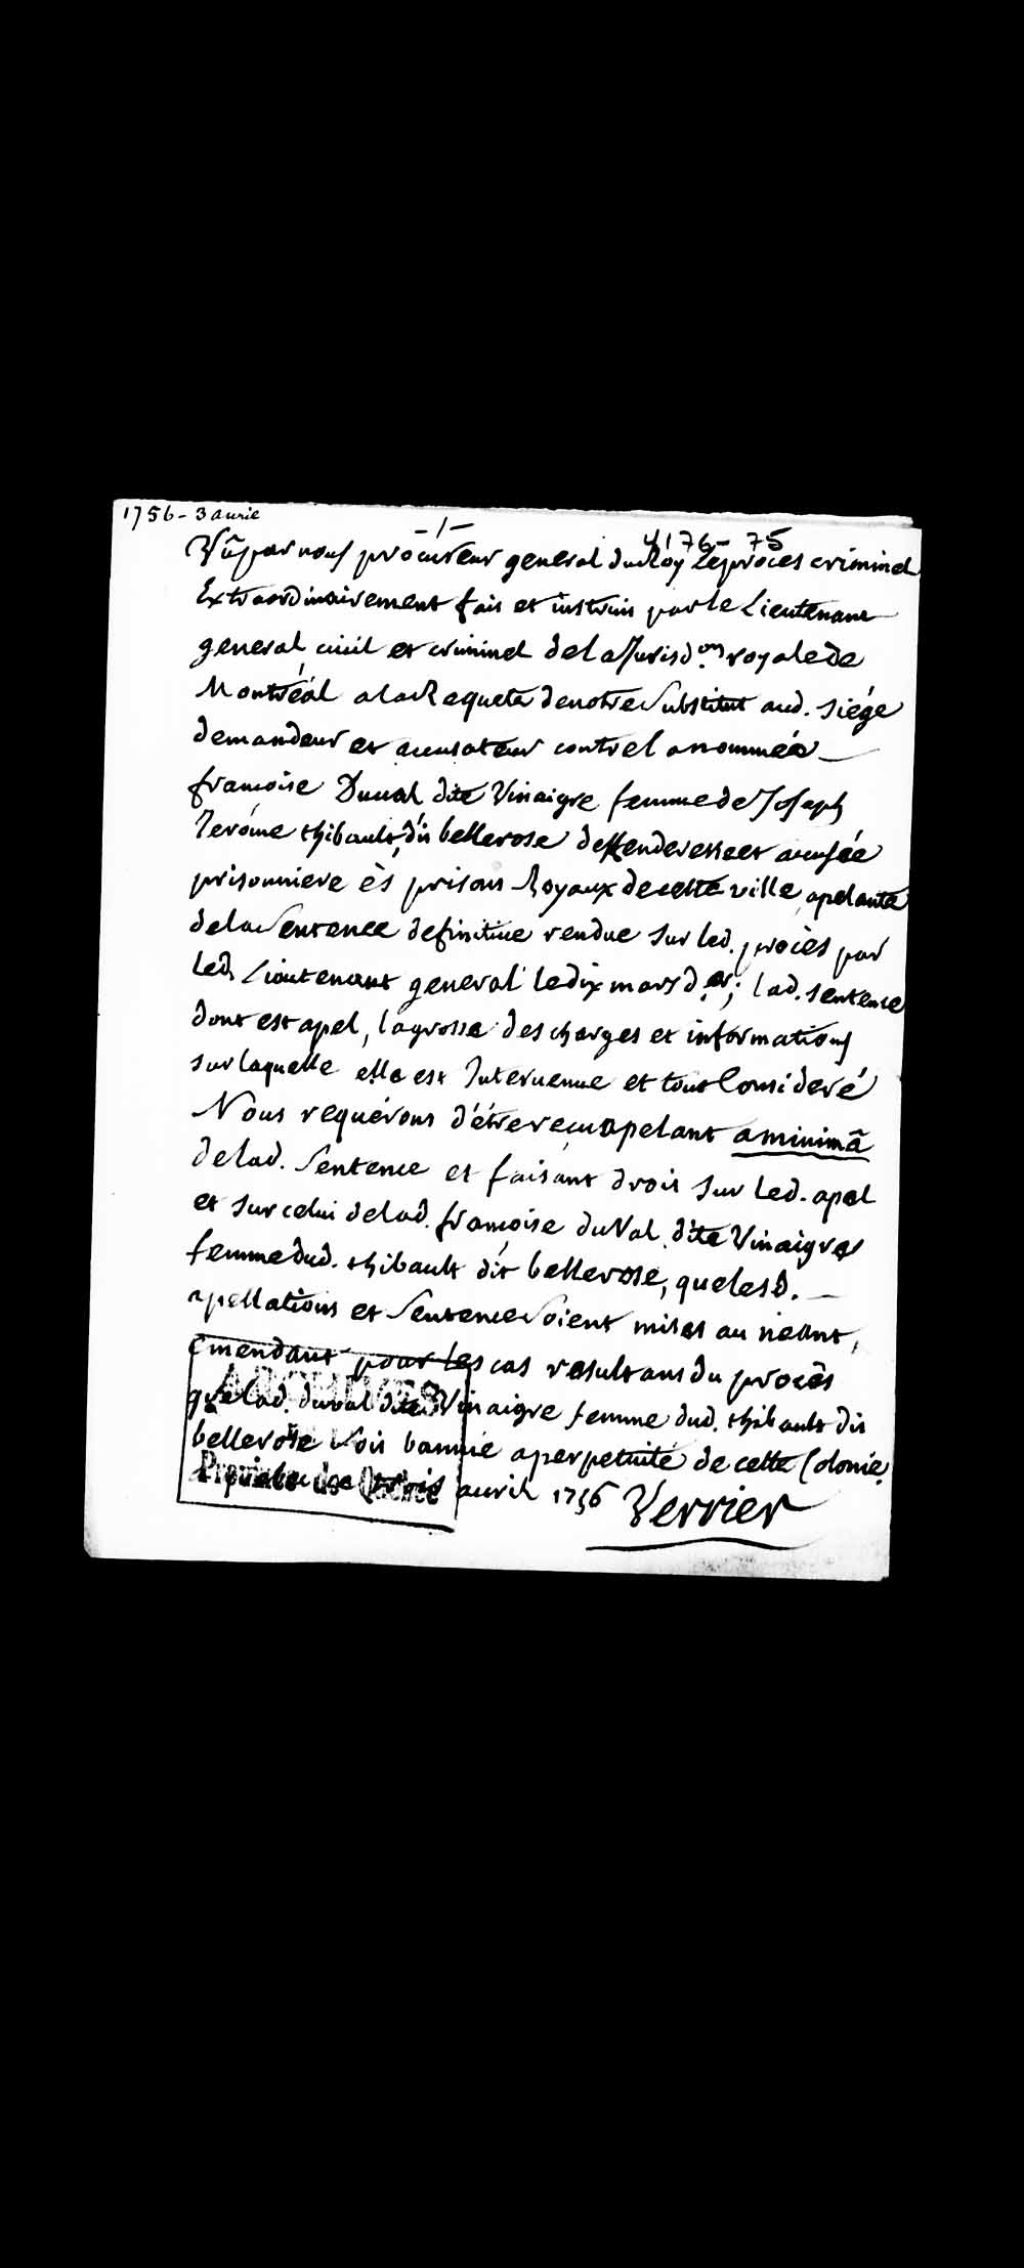 1756 - 3 avril
- 1 -
4176 - 75
Vû par nous procureur general du Roy Le procès criminel
Extraordinairement fait et instruit par le Lieutenant
general, civil et criminel de la Jurisd.on royale de
Montréal a la Requete de notre Substitut aud. siége
demandeur et accusateur contre la nommée
francoise Duual dite Vinaigre femme de Joseph
Jerôme thibault, dit bellerose deffenderesse et accusée
prisonniere ès prisons Royaux de cette ville, apelante
de la Sentence definitiue rendue sur led. procès par
led. Lieutenant general le dix mars d.er; lad. sentence
dont est apel, la grosse des charges et informations
sur laquelle elle est Interuenue et tout Consideré
Nous requérons d'étre recu apelant a minimâ
de lad. Sentence et faisant droit sur led. apel
et sur celui de lad. francoise duVal dite Vinaigre
femme dud. thibault dit bellerose, que lesd.
apellations et Sentence Soient mises au néant,
émendant pour les cas resultans du procès
que lad. duval dite Vinaigre femme dud. thibault dit
bellerose Soit bannie a perpetuité de cette Colonie.
a quebec le trois auril 1756 Verrier
ARCHIVES
Province de Québec